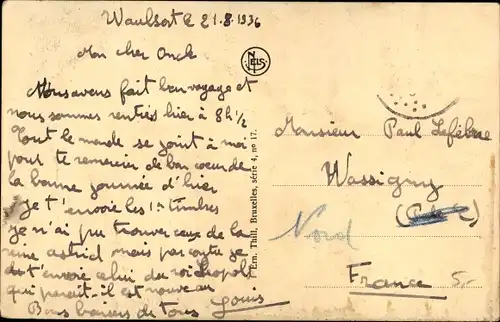 Waulsort le 21.8.1936
Mon cher Oncle
Nous avons fait bon voyage et
nous sommes rentrés hier à 8h 1/2
Tout le monde se joint à moi
pour te remercier de bon coeur de
la bonne journée d'hier
je t'envoie les 1rs timbres
je n'ai pu trouver ceux de la
reine astrid mais par contre je
t'envoie celui du roi Léopold
qui parait il est nouveau
Bons baisers de tous Louis
NELS
Ern. Thill, Bruxelles, série 4, no 17.
Monsieur Paul Lefébvre
Wassigny
Nord
France 5,-